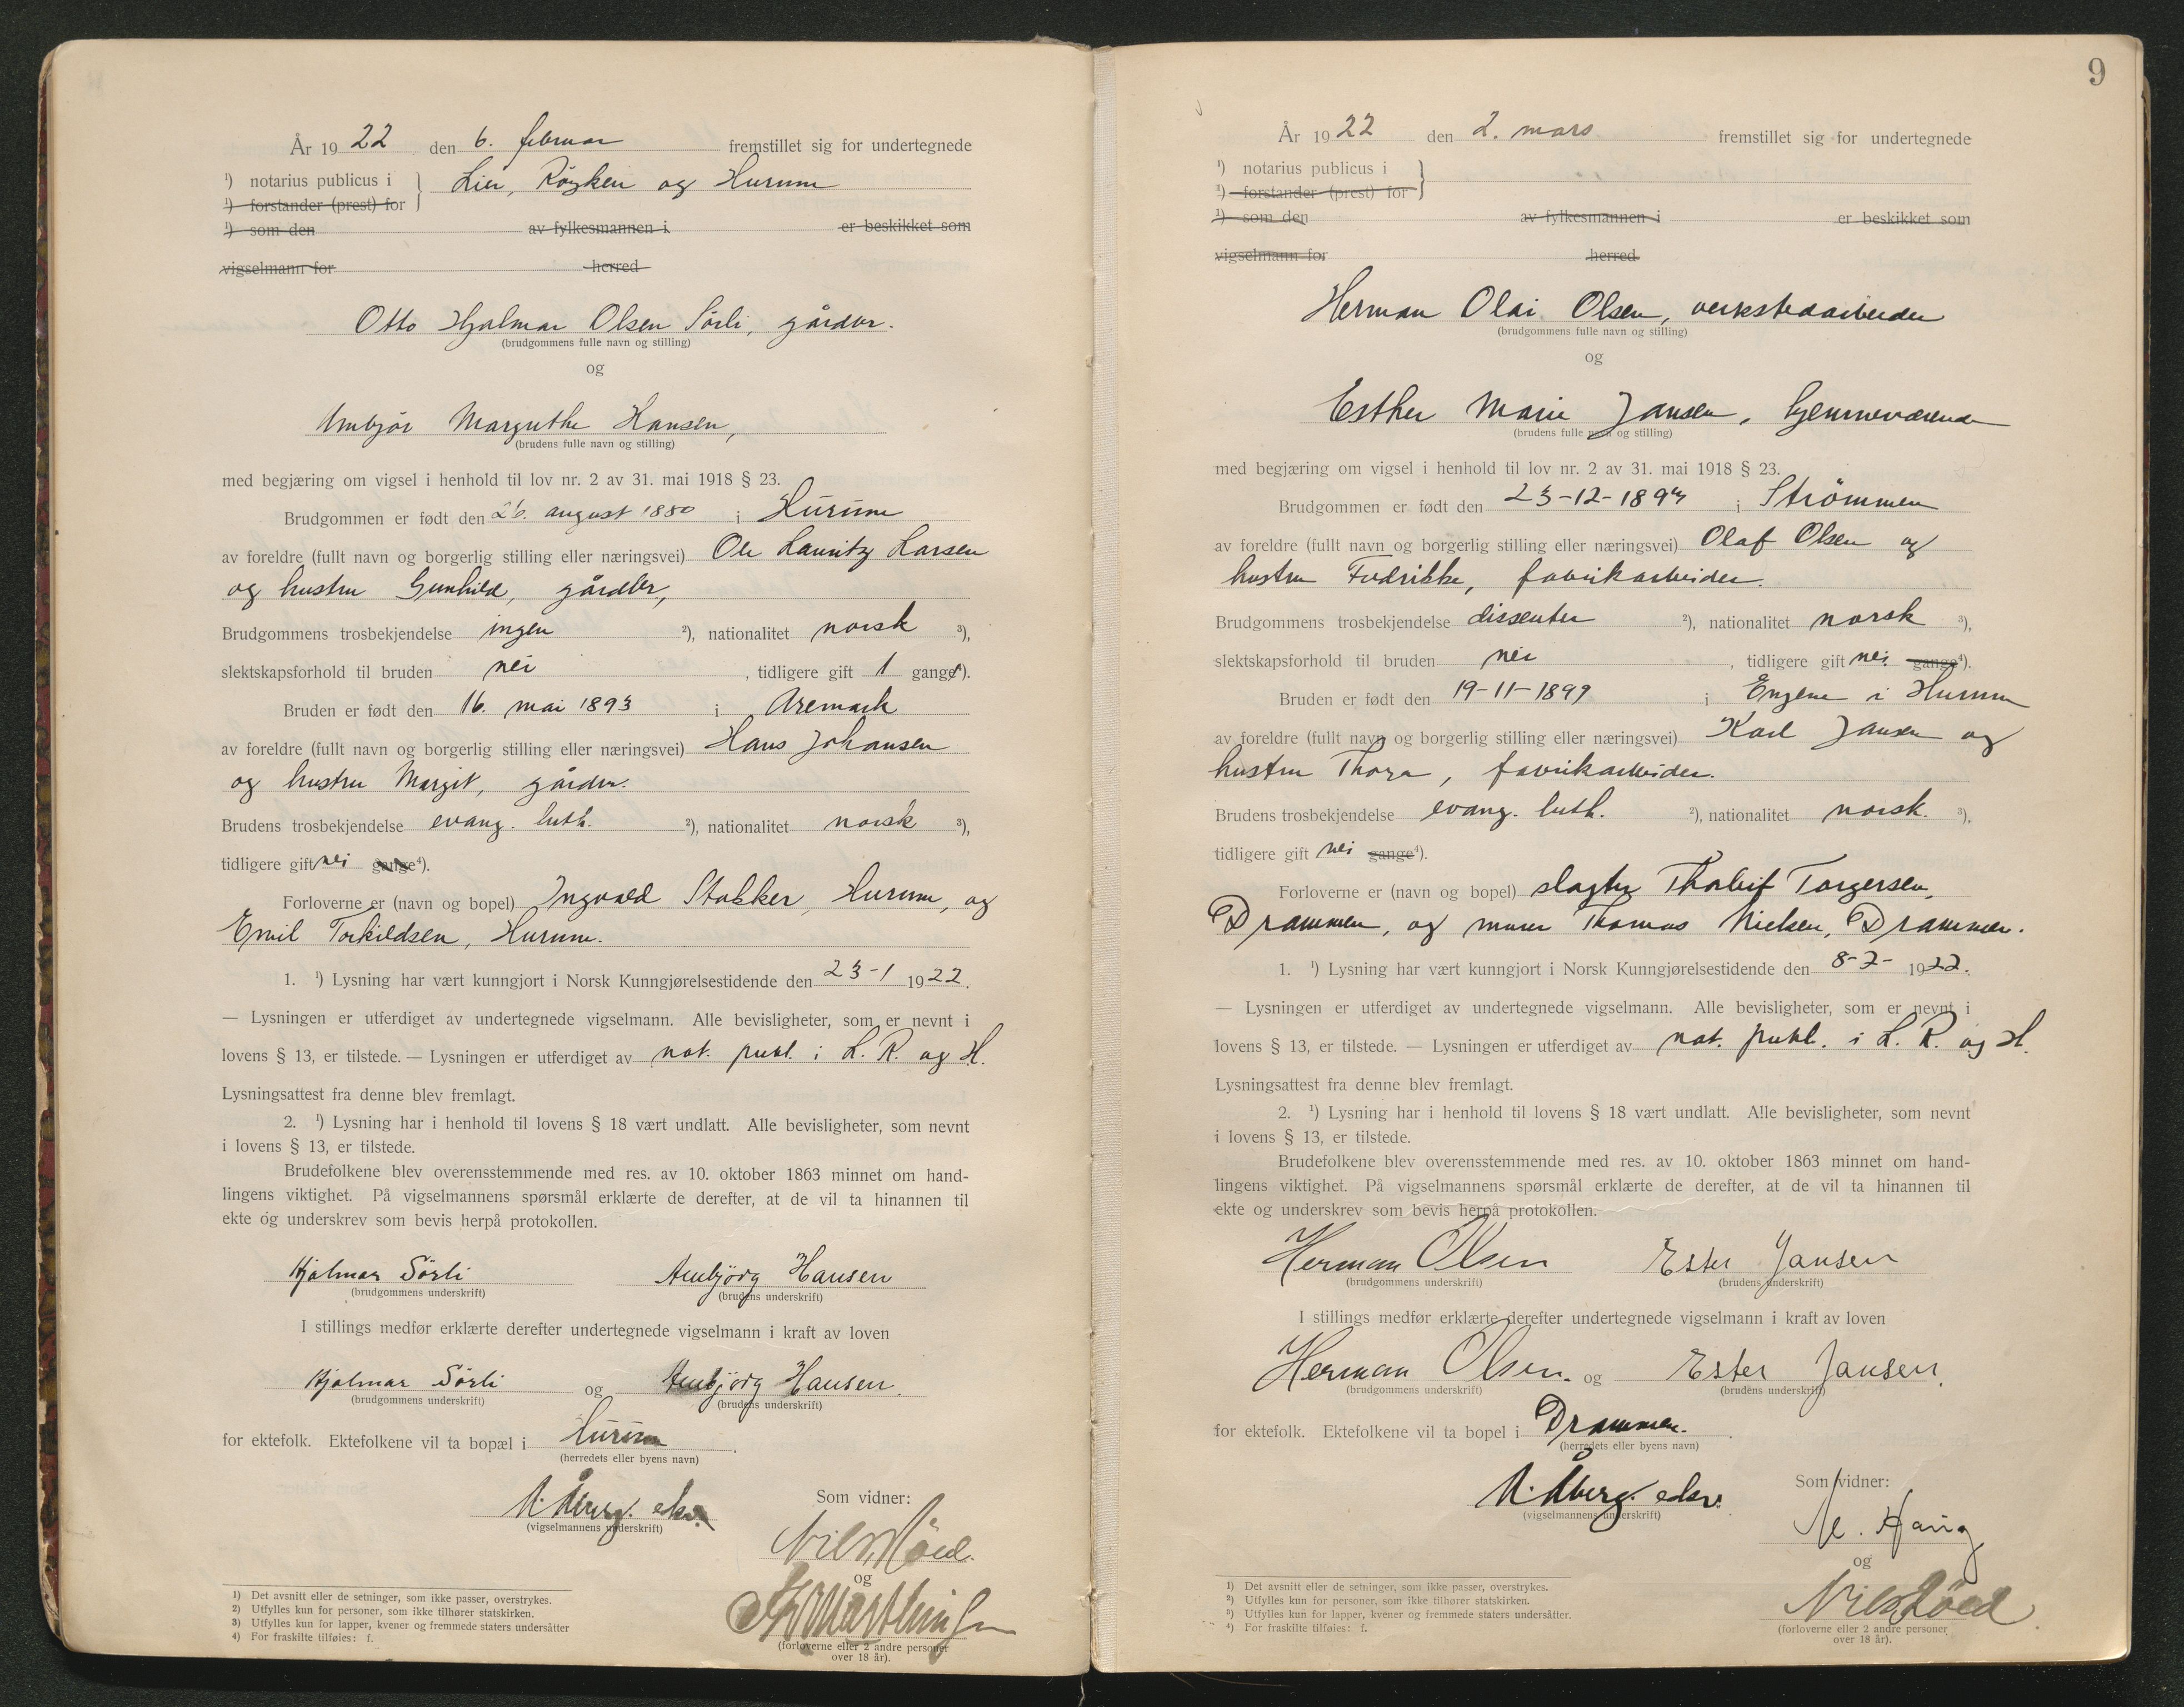 År 1922 den 6. februar fremstillet sig for undertegnede
¹) notarius publicus i } Lier, Røyken og Hurum
¹) forstander (prest) for
¹) som den av fylkesmannen i er beskikket som
vigselmann for herred
Otto Hjalmar Olsen Sørli, gårdbr.
(brudgommens fulle navn og stilling)
og
Margrethe Hansen,
(brudens fulle navn og stilling)
med begjæring om vigsel i henhold til lov nr. 2 av 31. mai 1918 § 23.
Brudgommen er født den 26. august 1880 i Hurum
av foreldre (fullt navn og borgerlig stilling eller næringsvei) Ole Lauritz Larsen
og hustru Gunhild, gårdbr,
Brudgommens trosbekjendelse ingen ²), nationalitet norsk ³),
slektskapsforhold til bruden nei , tidligere gift 1 gang⁴).
Bruden er født den 16. mai 1893 i Aremark
av foreldre (fullt navn og borgerlig stilling eller næringsvei) Hans Johansen
og hustru Margit, gårdbr.
Brudens trosbekjendelse evang. luth. ²), nationalitet norsk ³),
tidligere gift nei gange⁴).
Forloverne er (navn og bopel) Ingvald Stokker, Hurum, og
Emil Torkildsen, Hurum.
1. ¹) Lysning har vært kunngjort i Norsk Kunngjørelsestidende den 23-1 1922.
— Lysningen er utferdiget av undertegnede vigselmann. Alle bevisligheter, som er nevnt i
lovens § 13, er tilstede. — Lysningen er utferdiget av not. publ. i L. R. og H.
Lysningsattest fra denne blev fremlagt.
2. ¹) Lysning har i henhold til lovens § 18 vært undlatt. Alle bevisligheter, som nevnt
i lovens § 13, er tilstede.
Brudefolkene blev overensstemmende med res. av 10. oktober 1863 minnet om hand-
lingens viktighet. På vigselmannens spørsmål erklærte de derefter, at de vil ta hinannen til
ekte og underskrev som bevis herpå protokollen.
Hjalmar Sörli Arnbjörg Hansen
(brudgommens underskrift) (brudens underskrift)
I stillings medfør erklærte derefter undertegnede vigselmann i kraft av loven
Hjalmar Sörli og Arnbjörg Hansen.
(brudgommens underskrift) (brudens underskrift)
for ektefolk. Ektefolkene vil ta bopæl i Hurum.
(herredets eller byens navn)
N. Åberg. eksv.
(vigselmannens underskrift)
Som vidner:
Nils
og
(forloverne eller 2 andre personer
over 18 år).
1) Det avsnitt eller de setninger, som ikke passer, overstrykes.
2) Utfylles kun for personer, som ikke tilhører statskirken.
3) Utfylles kun for lapper, kvener og fremmede staters undersåtter
4) For fraskilte tilføies: f.
9
År 1922 den 2. mars fremstillet sig for undertegnede
¹) notarius publicus i }
¹) forstander (prest) for
¹) som den av fylkesmannen i er beskikket som
vigselmann for herred
Herman Olai Olsen, verkstedarbeider
(brudgommens fulle navn og stilling)
og
Esther Marie Jansen, hjemmeværende
(brudens fulle navn og stilling)
med begjæring om vigsel i henhold til lov nr. 2 av 31. mai 1918 § 23.
Brudgommen er født den 23-12-1893 i Strömmen
av foreldre (fullt navn og borgerlig stilling eller næringsvei) Olaf Olsen og
hustru Fredrikke, fabrikarbeider.
Brudgommens trosbekjendelse dissenter ²), nationalitet norsk ³),
slektskapsforhold til bruden nei , tidligere gift nei gange⁴).
Bruden er født den 19-11-1899 i Engene i Hurum
av foreldre (fullt navn og borgerlig stilling eller næringsvei) Karl Jansen og
hustru Thora, fabrikarbeider.
Brudens trosbekjendelse evang. luth. ²), nationalitet norsk. ³),
tidligere gift nei gange⁴).
Forloverne er (navn og bopel) slagter Thorleif Torgersen,
Drammen, og murer Thomas Nielsen, Drammen.
1. ¹) Lysning har vært kunngjort i Norsk Kunngjørelsestidende den 8-2- 1922.
— Lysningen er utferdiget av undertegnede vigselmann. Alle bevisligheter, som er nevnt i
lovens § 13, er tilstede. — Lysningen er utferdiget av not. publ. i L. R. og H.
Lysningsattest fra denne blev fremlagt.
2. ¹) Lysning har i henhold til lovens § 18 vært undlatt. Alle bevisligheter, som nevnt
i lovens § 13, er tilstede.
Brudefolkene blev overensstemmende med res. av 10. oktober 1863 minnet om hand-
lingens viktighet. På vigselmannens spørsmål erklærte de derefter, at de vil ta hinannen til
ekte og underskrev som bevis herpå protokollen.
Herman Olsen Ester Jansen
(brudgommens underskrift) (brudens underskrift)
I stillings medfør erklærte derefter undertegnede vigselmann i kraft av loven
Herman Olsen. og Ester Jansen.
(brudgommens underskrift) (brudens underskrift)
for ektefolk. Ektefolkene vil ta bopel i Drammen.
(herredets eller byens navn)
N. Åberg. eksv.
(vigselmannens underskrift)
Som vidner:
M. Haug
og
Nils
(forloverne eller 2 andre personer
over 18 år).
1) Det avsnitt eller de setninger, som ikke passer, overstrykes.
2) Utfylles kun for personer, som ikke tilhører statskirken.
3) Utfylles kun for lapper, kvener og fremmede staters undersåtter.
4) For fraskilte tilføies: f.